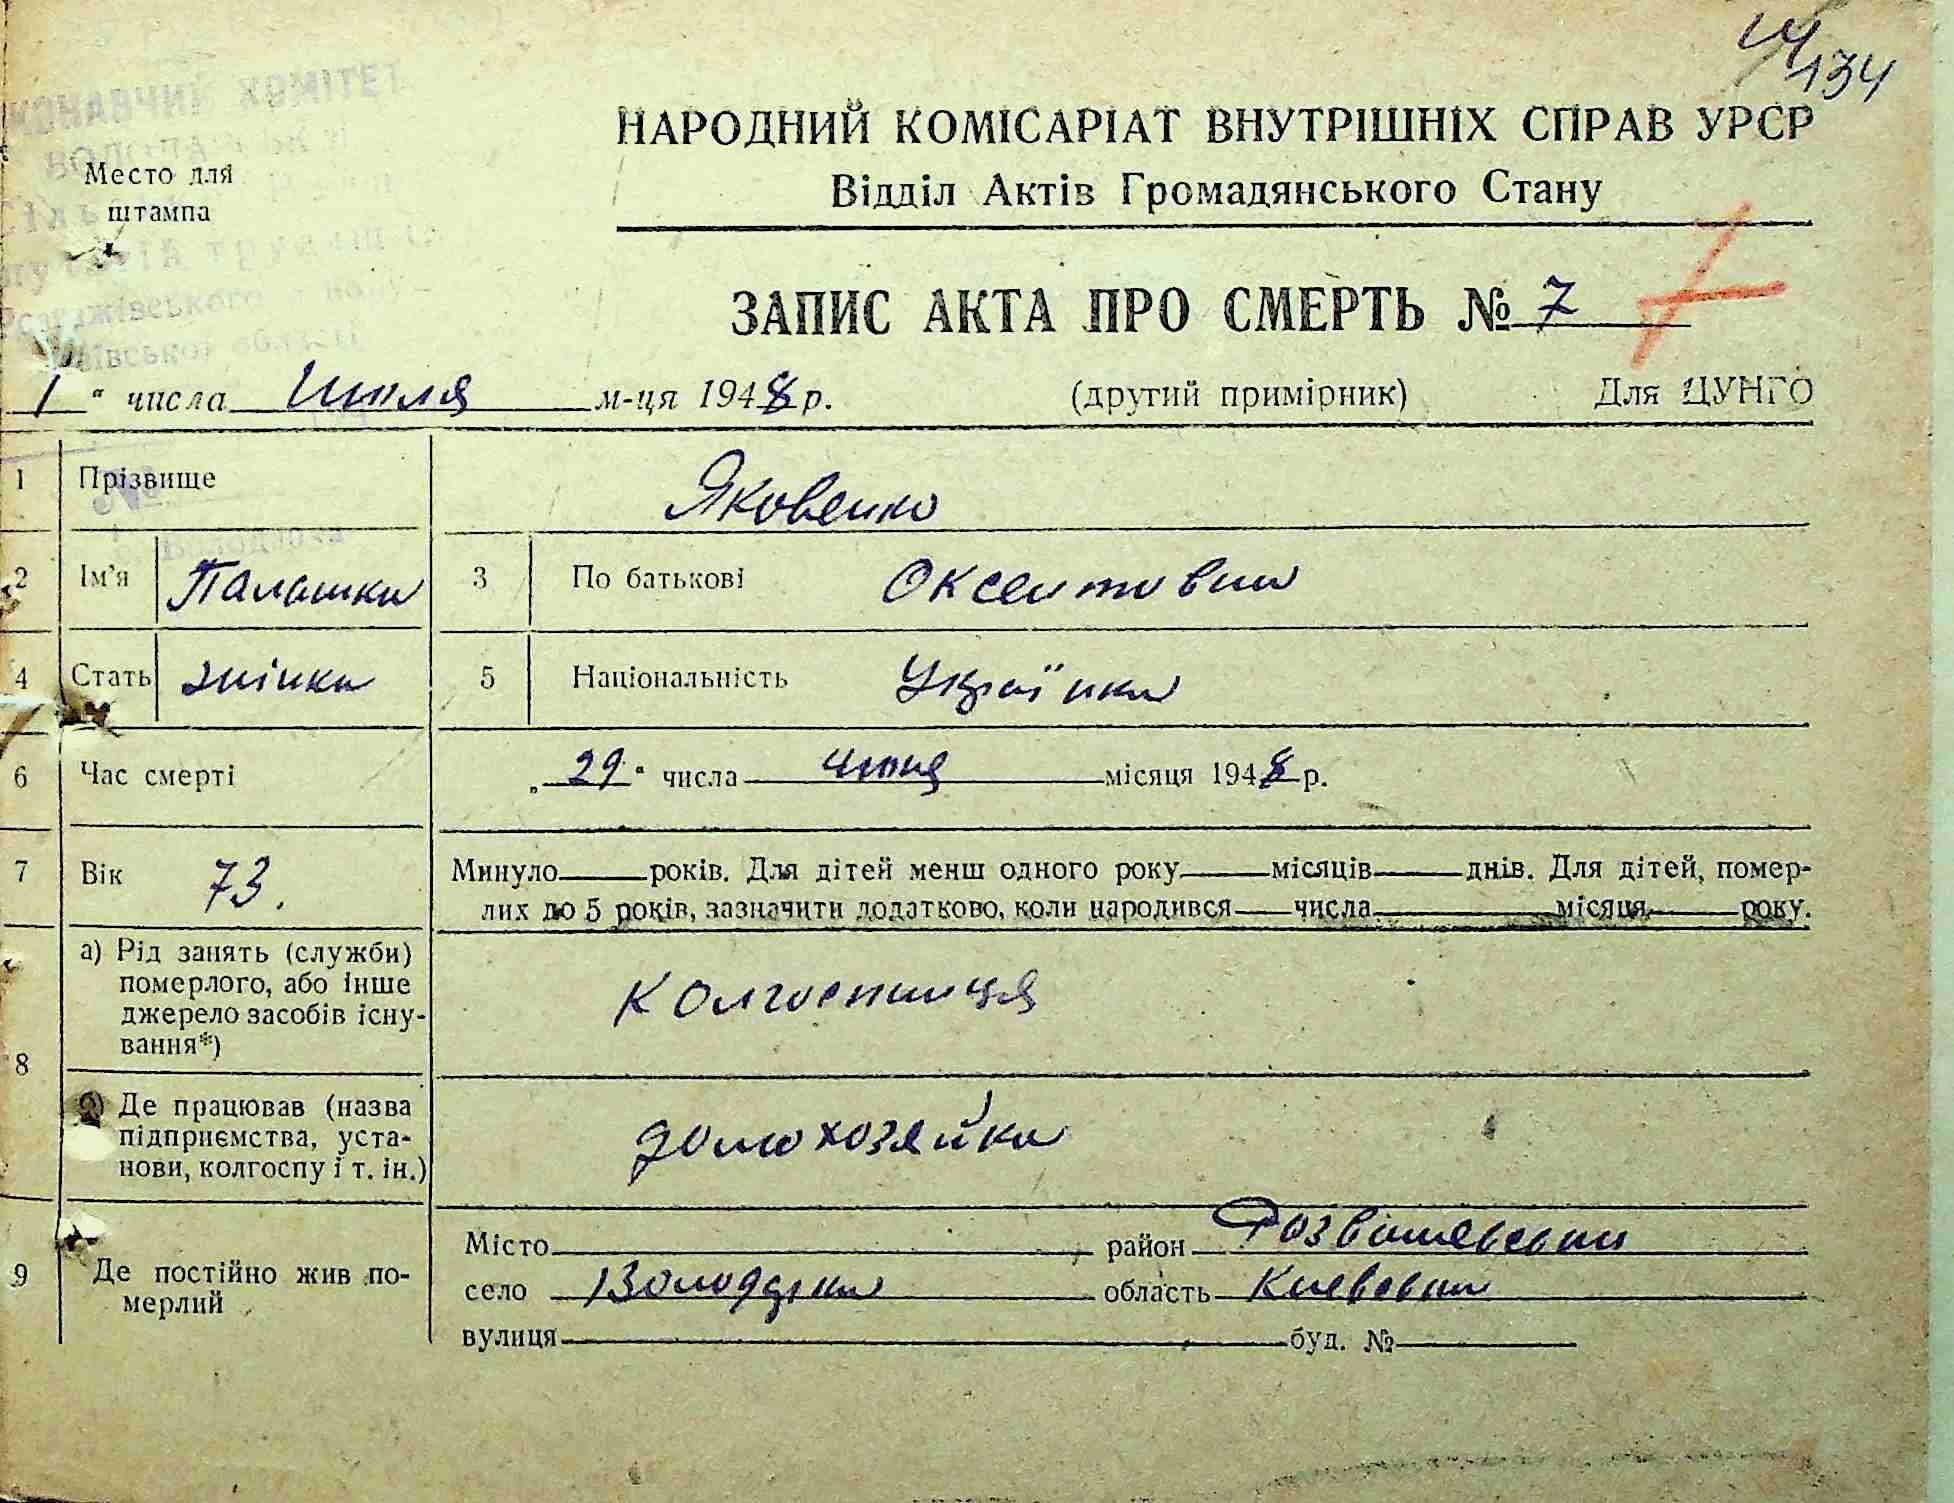 134
НАРОДНИЙ КОМІСАРІАТ ВНУТРІШНІХ СПРАВ УРСР
Відділ Актів Громадянського Стану
КОМІТЕТ
Место для
штампа
ЗАПИС АКТА ПРО СМЕРТЬ № 7
1 " числа Июля м-ця 1948 р. (другий примірник) Для ЦУНГО
1 Прізвище Яковенко
2 Ім'я Палашка 3 По батькові Оксентовна
4 Стать жінка 5 Національність Українка
6 Час смерті „ 29 " числа Июня місяця 1948 р.
7 Вік 73. Минуло року років. Для дітей менш одного року місяців днів. Для дітей, помер-
лих до 5 років, зазначити додатково, коли народився числа місяця року.
8 а) Рід занять (служби)
померлого, або інше
джерело засобів існу-
вання*)
колгоспниця
б) Де працював (назва
підприємства, уста-
нови, колгоспу і т. ін.)
домохозяйка
9 Де постійно жив по-
мерлий
Місто район
село область Киевская
вулиця буд. №